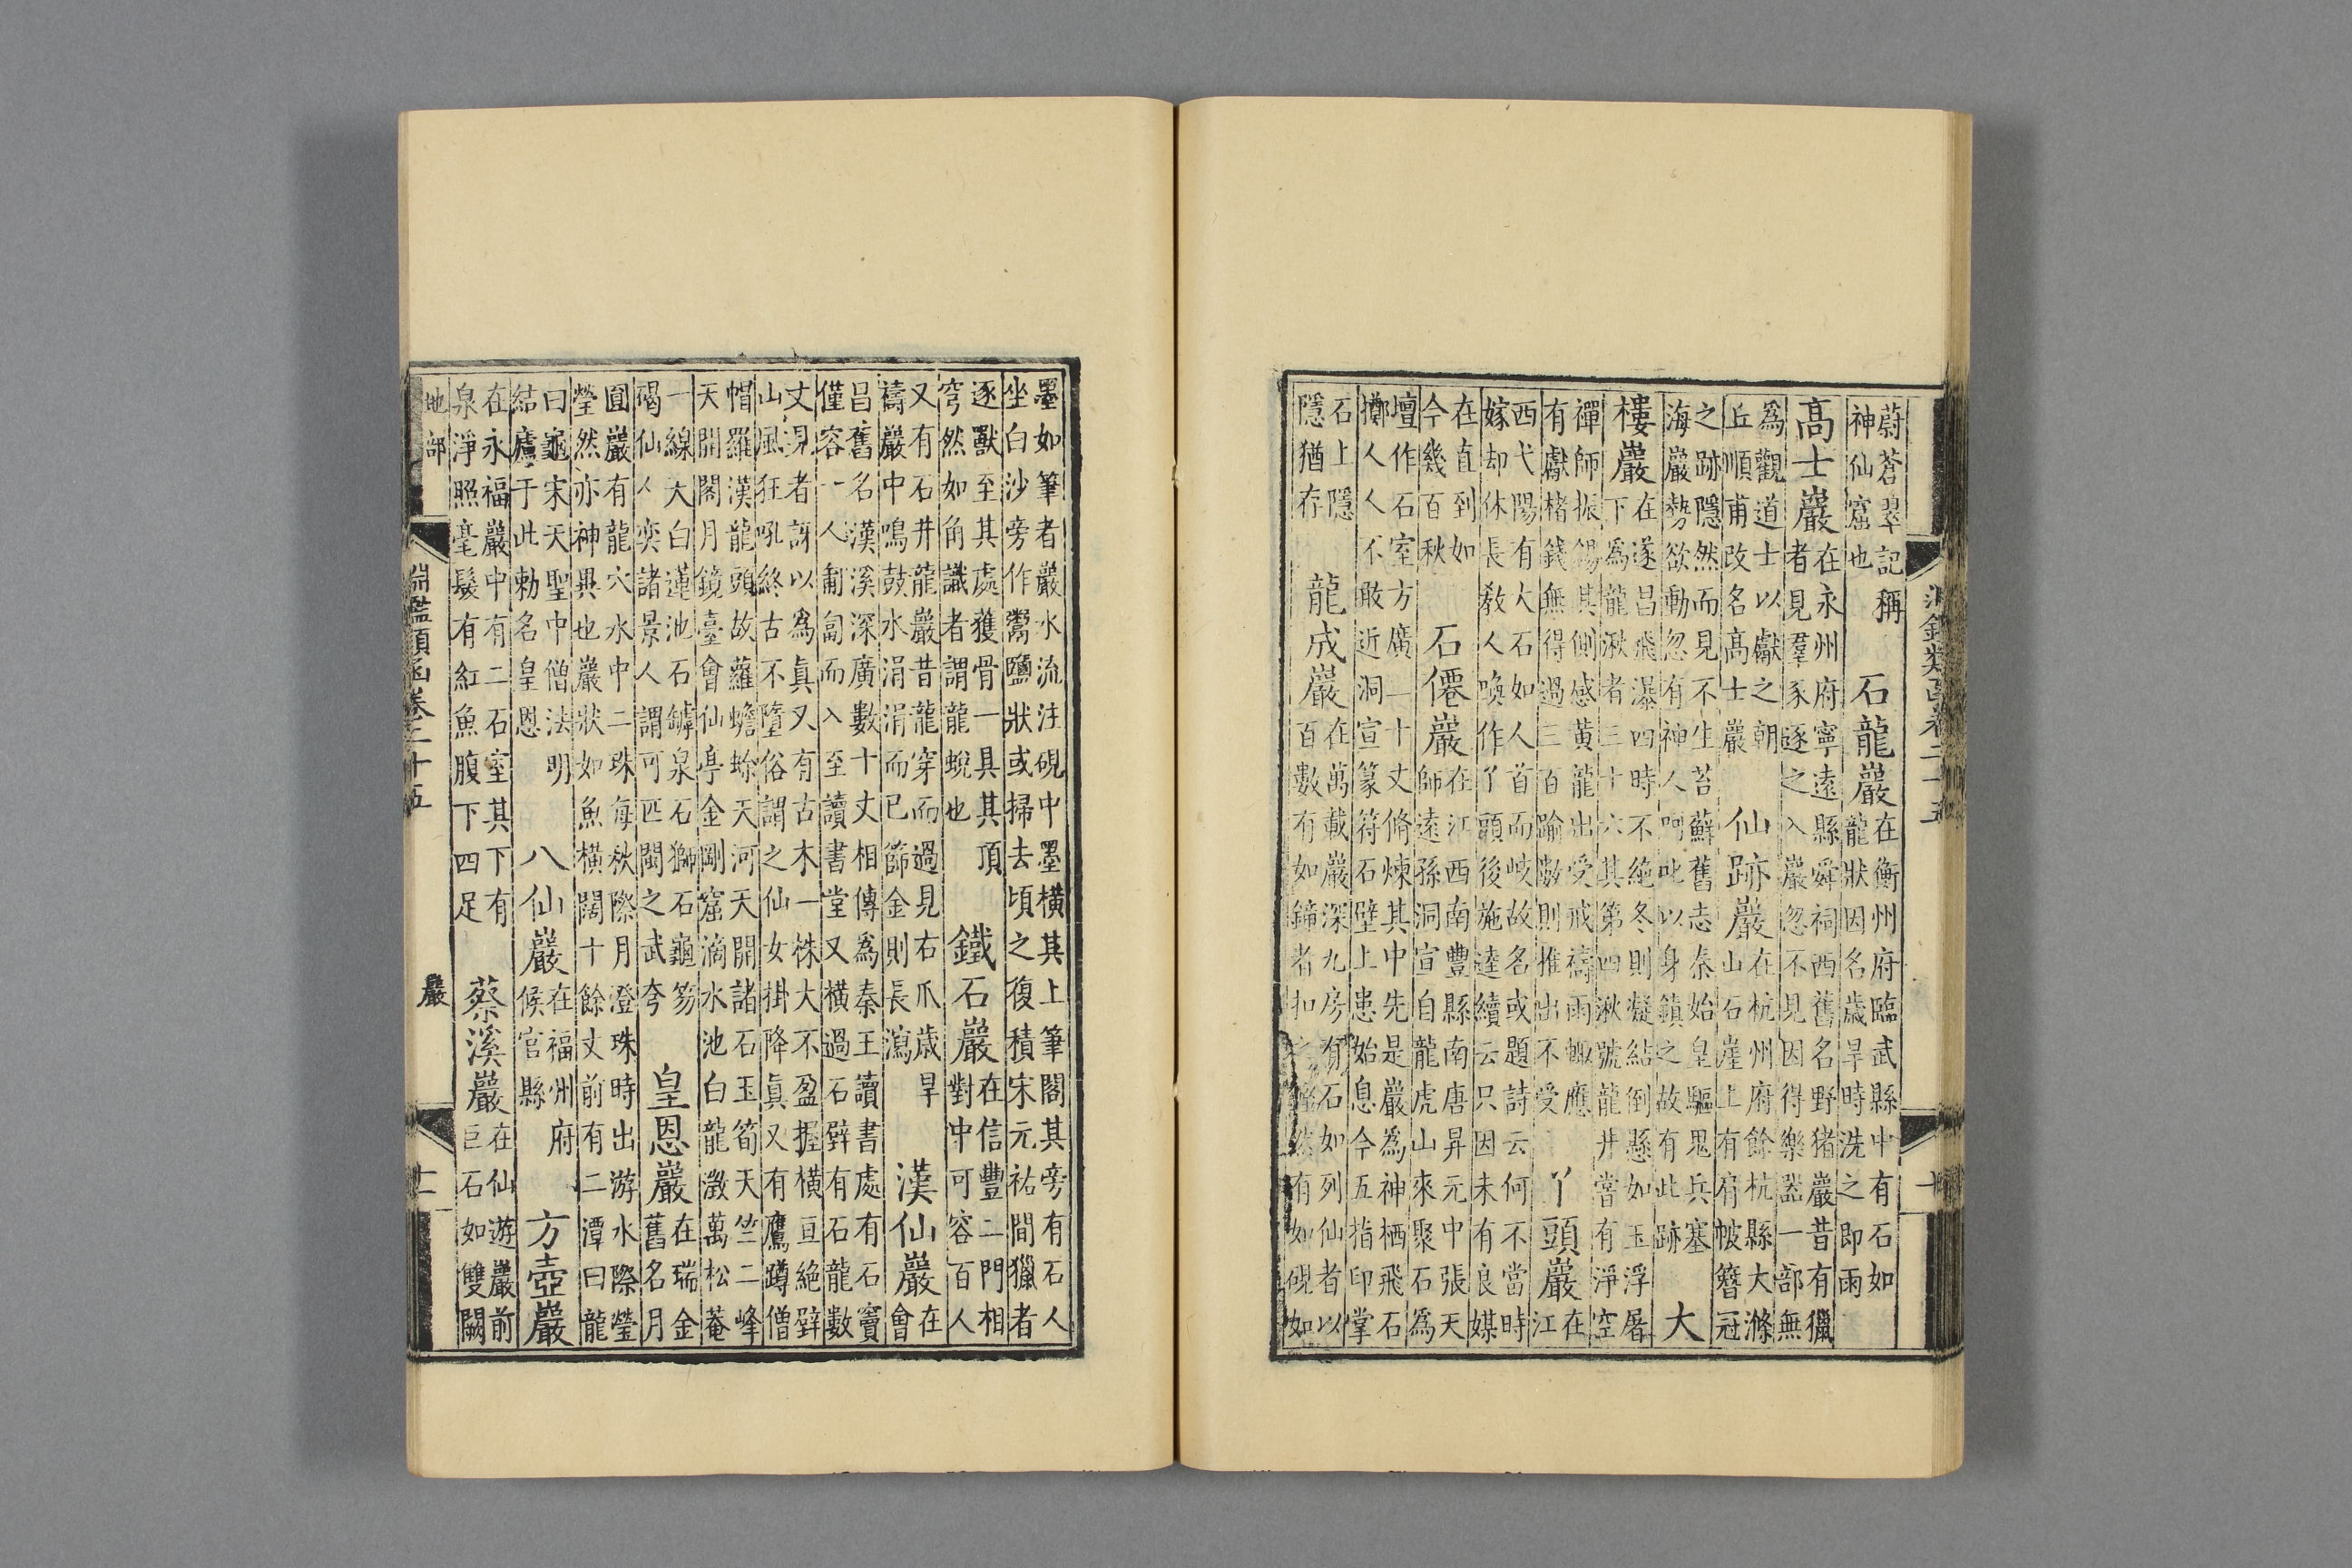 蔚蒼翠記稱
神仙窟也
石龍巖
在衡州府臨武縣中有石如
龍狀因名歲旱時洗之即雨
高士巖
在永州府寧遠縣舜祠西舊名野猪巖昔有獵
者見羣豕逐之入巖忽不見因得樂器一部無
為觀道士以獻之朝
丘順甫改名高士巖
仙跡巖
在杭州府餘杭縣大滌
山石崖上有肩帔簪冠
之跡隱然而見不生苔蘚舊志秦始皇驅鬼兵塞
海巖勢欲動忽有神人呵叱以身鎮之故有此跡
大
樓巖
在遂昌飛瀑四時不絕冬則凝結倒懸如玉浮屠
下為龍湫者三十六其第四湫號龍井嘗有淨空
禪師振錫其側感黃龍出受戒禱雨輙應
有獻楮錢無得過三百踰數則推出不受
丫頭巖
在
江
西弋陽有大石如人首而岐故名或題詩云何不當時
嫁却休長教人喚作丫頭後施逵續云只因未有良媒
在直到如
今幾百秋
石僊巖
在江西南豐縣南唐昇元中張天
師遠孫洞宣自龍虎山來聚石為
壇作石室方廣一十丈脩煉其中先是巖為神栖飛石
擲人人不敢近洞宣篆符石壁上患始息今五指印掌
石上隱
隱猶存
龍成巖
在萬載巖深九房有石如列仙者以
百數有如鐘者扣之鏗然有如硯如
墨如筆者巖水流注硯中墨橫其上筆閣其旁有石人
坐白沙旁作鬻鹽狀或掃去頃之復積宋元祐間獵者
逐獸至其處獲骨一具其頂
穹然如角識者謂龍蛻也
鐵石巖
在信豐二門相
對中可容百人
又有石井龍巖昔龍穿而過見右爪歲旱
禱巖中鳴鼓水涓涓而已篩金則長瀉
漢仙巖
在
會
昌舊名漢溪深廣數十丈相傳為秦王讀書處有石竇
僅容一人匍匐而入至讀書堂又橫過石壁有石龍數
丈見者訝以為真又有古木一株大不盈握橫亘絕壁
山風狂吼終古不墮俗謂之仙女掛降真又有鷹蹲僧
帽羅漢龍頭故蘿蟾蜍天河天開諸石玉筍天竺二峰
天開閣月鏡臺會仙亭金剛窟滴水池白龍漵萬松菴
一線大白蓮池石罅泉石獅石龜笏
碣仙人奕諸景人謂可匹閩之武夸
皇恩巖
在瑞金
舊名月
圓巖有龍穴水中二珠每秋際月澄珠時出游水際瑩
瑩然亦神異也巖狀如魚橫闊十餘丈前有二潭曰龍
曰龜宋天聖中僧法明
結廬于此勅名皇恩
八仙巖
在福州府
候官縣
方壺巖
在永福巖中有二石室其下有
泉淨照毫髮有紅魚腹下四足
蔡溪巖
在仙遊巖前
巨石如雙闕
地部
巖
淵鑑類函卷二十五
十一